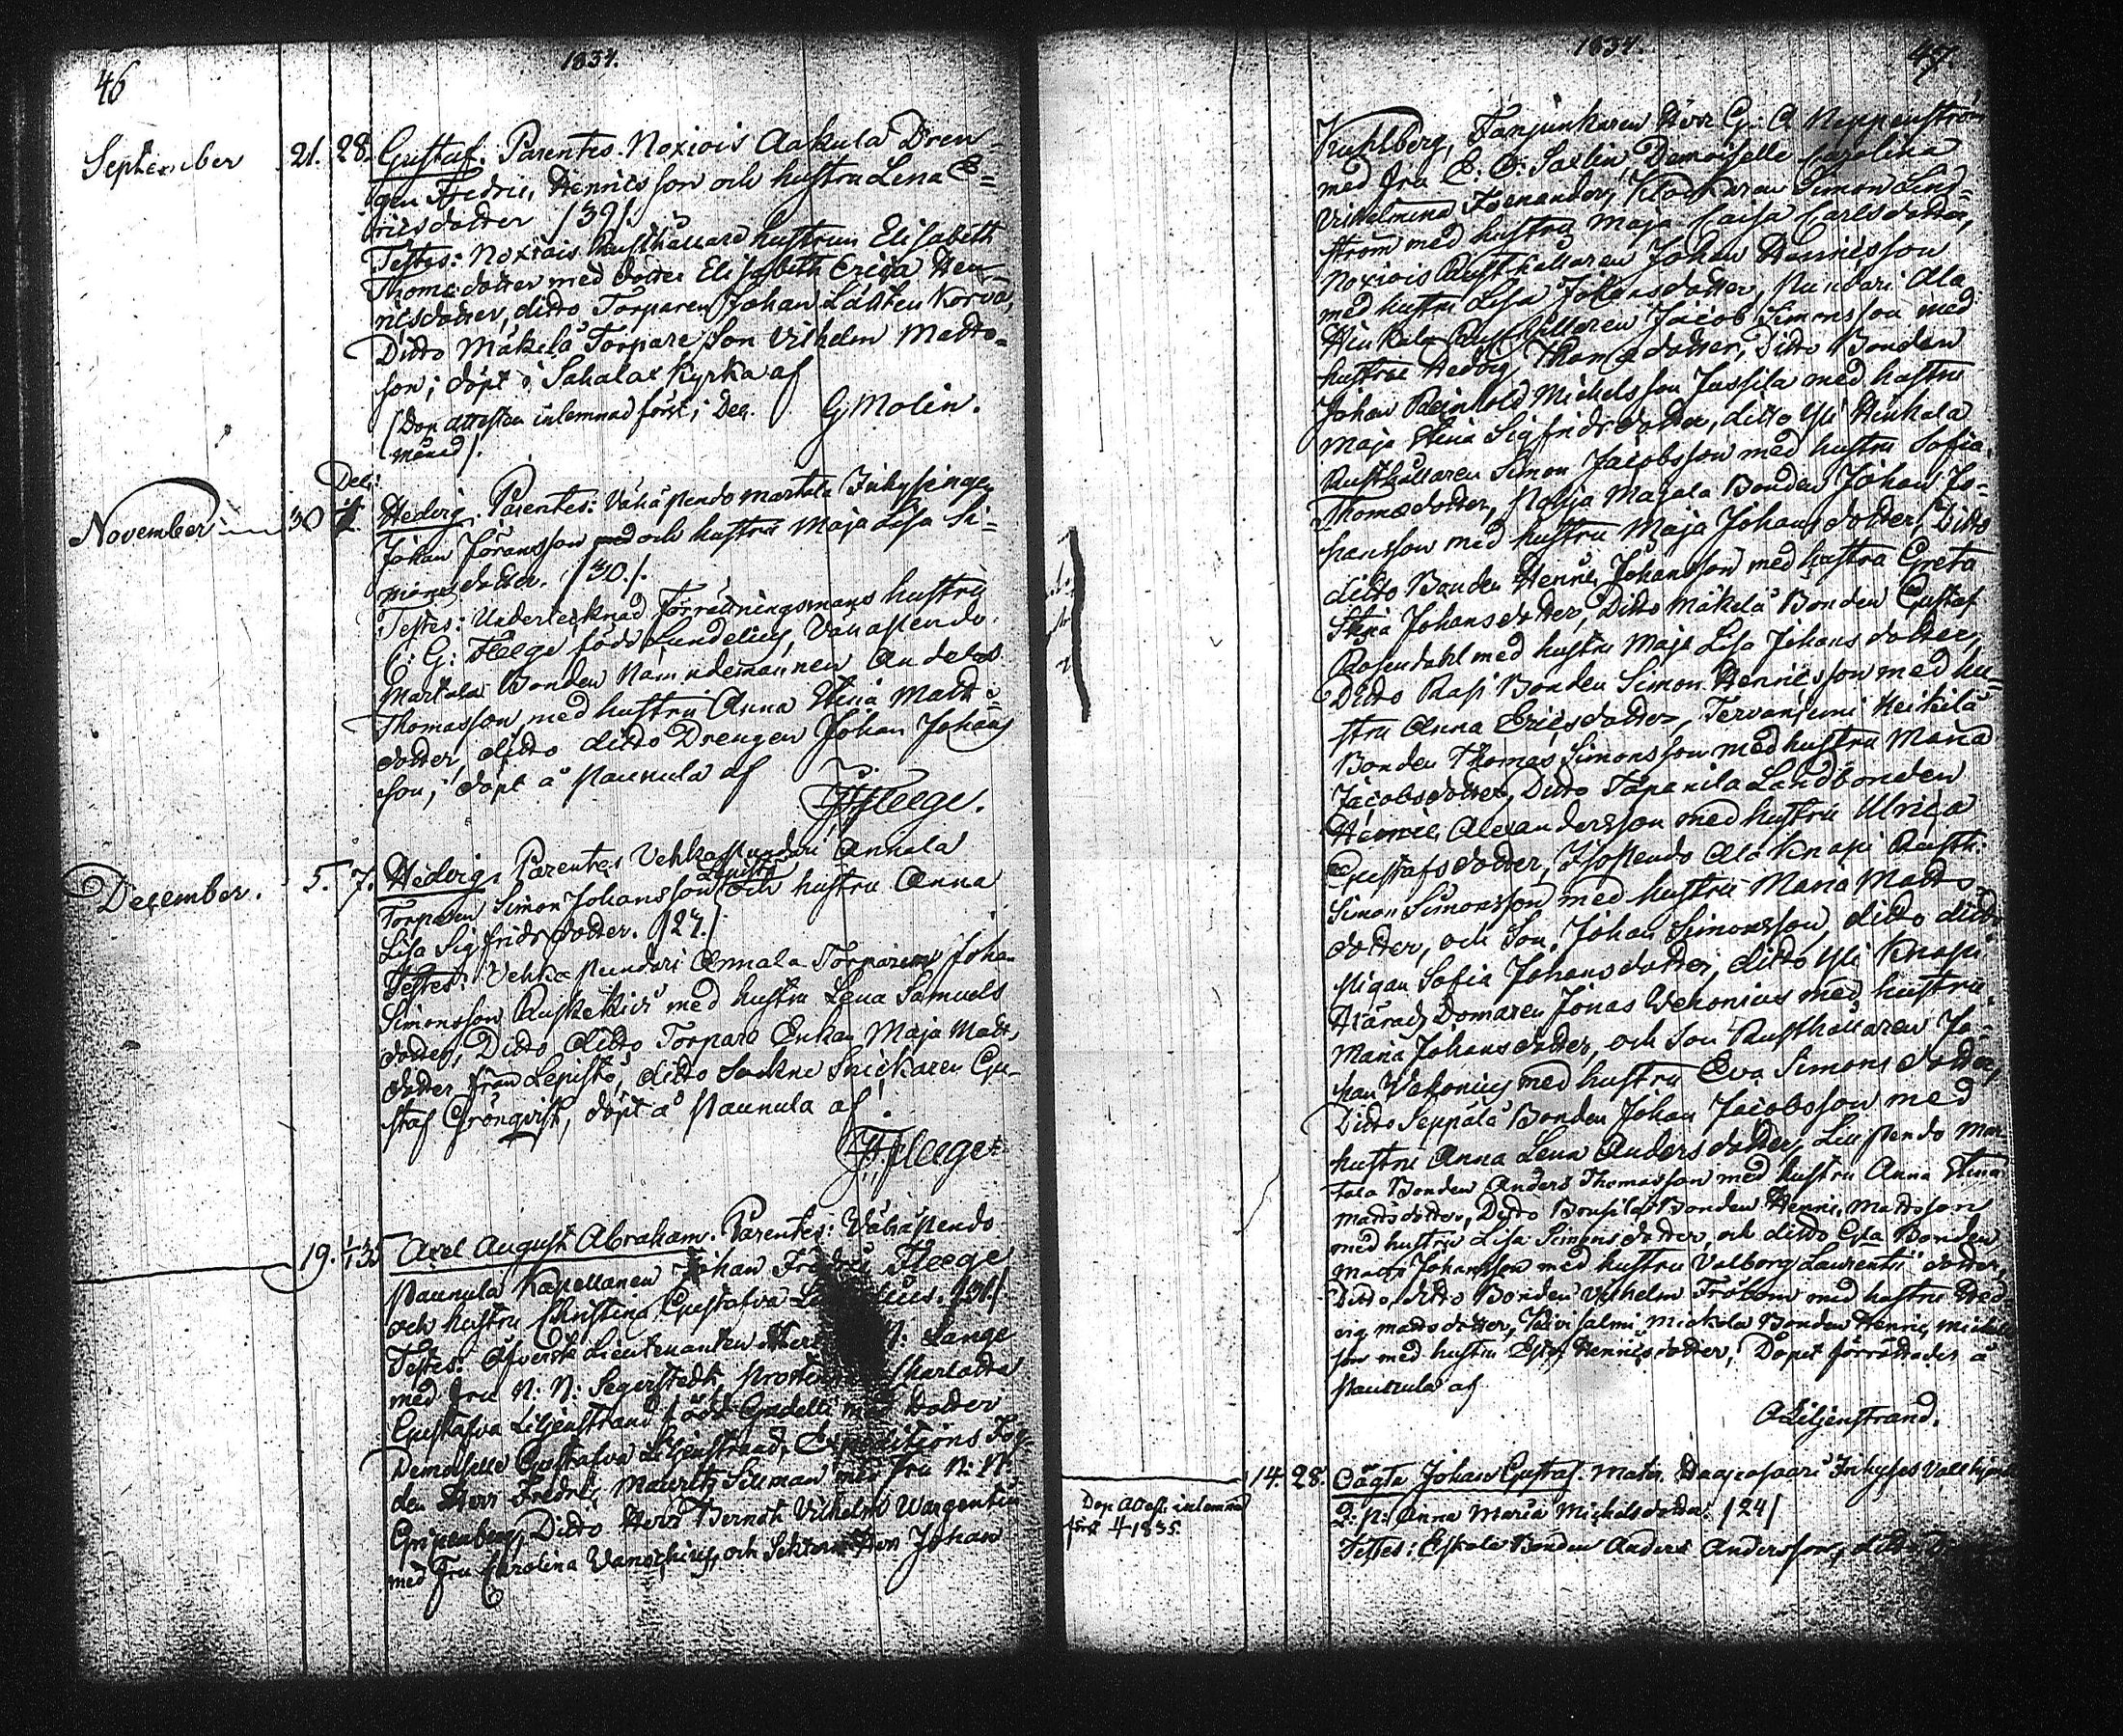 46
1834.
September 21. 28. Gustaf. Parentes. Noxiois Aakula Dren-
gen Fredric Henricsson och hustru Lena E-
ricsdotter /39/.
Testes: Noxiois Rusthållare hustrun Elisabeth
Thomædotter med dotter Elisabeth Erica Hen-
ricsdotter, ditto Torparen Johan Korva,
Ditto Mäkelä Torpare Son Vilhelm Matts-
son; döpt i Sahalax Kyrka af
(Dop attesten inlemnad först i Dec. G Molin.
månad).
Dec:
November 30 Hedvig. Parentes: Vähä Pendo Martala Inhysinge
Johan Göransson och hustru Maja Lisa Si-
monsdotter. /30./.
Testes: Undertecknad Förrättningsmans hustru
C: G: Fleege född Lundelius, Vähäpendo
Martala Bonden Nämndemannen Anders
Thomasson med hustru Anna Stina Matts-
dotter, ditto ditto Drengen Johan Johans
son; döpt å Paunula af
J F Fleege.
December. 5. 7. Hedvig. Parentes Vehkapundari Annala
Lepistö
Torparen Simon Johansson och hustru Anna
Lisa Sigfridsdotter. /27./
Testes: Vehkapundari Annala Torparen Johan
Simonsson Ruskekivi med hustru Lena Samuels
dotter, Ditto ditto Torpare Enkan Maja Matts
dotter från Lepistö, ditto Sockne Snickaren Gu-
staf Grönqvist, döpt å Paunula af
J F Fleege
19. Axel August Abraham. Parentes: Vähäpendo
Paunula Kapellanen Johan Fredric Fleege
och hustru Christina Gustafva /31/
Testes: Öfverste Lieutenanten Herr N: Lange
med Fru N: N: Segerstedt, Charlotta
Gustafva Liljenstrand född Gadelli med dotter
Demoiselle Gustafva Liljenstrand, Expeditions Fog
den Herr Fredric Mauritz Silfman med Fru N: N:
Gripenberg, Ditto Herr Berndt Vilhelm Wargentin
med Fru Carolina och Herr Johan
1834.
47.
Kuhlberg, Fanjunkaren Herr G: A Neppenström
med fru E: E: Saxlin, Demoiselle Carolina
Vilhelmina Forenander, Klockaren Simon Lind-
ström med hustru Maja Caisa Carlsdotter,
Noxiois Rusthållaren Johan Henricsson
med hustru Lisa Johansdotter, Pundari Ala
Hinkala Rusthållaren Jacob Simonsson med
hustru Hedvig Thomædotter, Ditto Bonden
Johan Reinhold Michelsson Jussila med hustru
Maja Stina Sigfridsdotter, ditto Yli Hinkala
Rusthållaren Simon Jacobsson med hustru Sofia
Thomædotter, Bonden Johan Jo-
hansson med hustru Maja Johansdotter, Ditto
ditto Bonden Henric Johansson med hustru Greta
Stina Johansdotter, Ditto Mäkelä Bonden Gustaf
Rosendahl med hustru Maja Lisa Johansdotter,
Ditto Rasi Bonden Simon Henricsson med hu-
stru Anna Ericsdotter, Tervaniemi Heikilä
Bonden Thomas Simonsson med hustru Maria
Jacobsdotter, Ditto Tapanila Landbonden
Henric Alexandersson med hustru Ulrica
Gustafsdotter, Isopendo Ala Knapi Rusth:
Simon Simonsson med hustru Maria Matts-
dotter, och Son Johan Simonsson, ditto ditto
Pigan Sofia Johansdotter, ditto Yli Knapi
Härads Domaren Jonas Wehonius med hustru
Maria Johansdotter, och Son Rusthållaren Jo-
han Wehonius med hustru Eva Simonsdotter,
Ditto Seppälä Bonden Johan Jacobsson med
hustru Anna Lena Andersdotter, Mar-
tala Bonden Anders Thomasson med hustru Anna Stina
Mattsdotter, Ditto Bonden Henric Mattsson
med hustru Lisa Simonsdotter, och ditto Bonden
Matts Johansson med hustru Valborg Laurentii dotter,
Ditto ditto Bonden Vilhelm Fröbom med hustru Hed-
vig Mattsdotter, Päivisalmi Mickola Bonden Henric Michels
son med hustru Henricsdotter, Dopet förrättades å
Paunula af
A Liljenstrand.
14. 28. Oägta Johan Gustaf. Mater. Inhyses
Q: P: Anna Maria Michelsdotter. /24/
Testes: Eskola Bonden Anders Andersson, ditto
Dop Attest. inlemnad
först 1835.